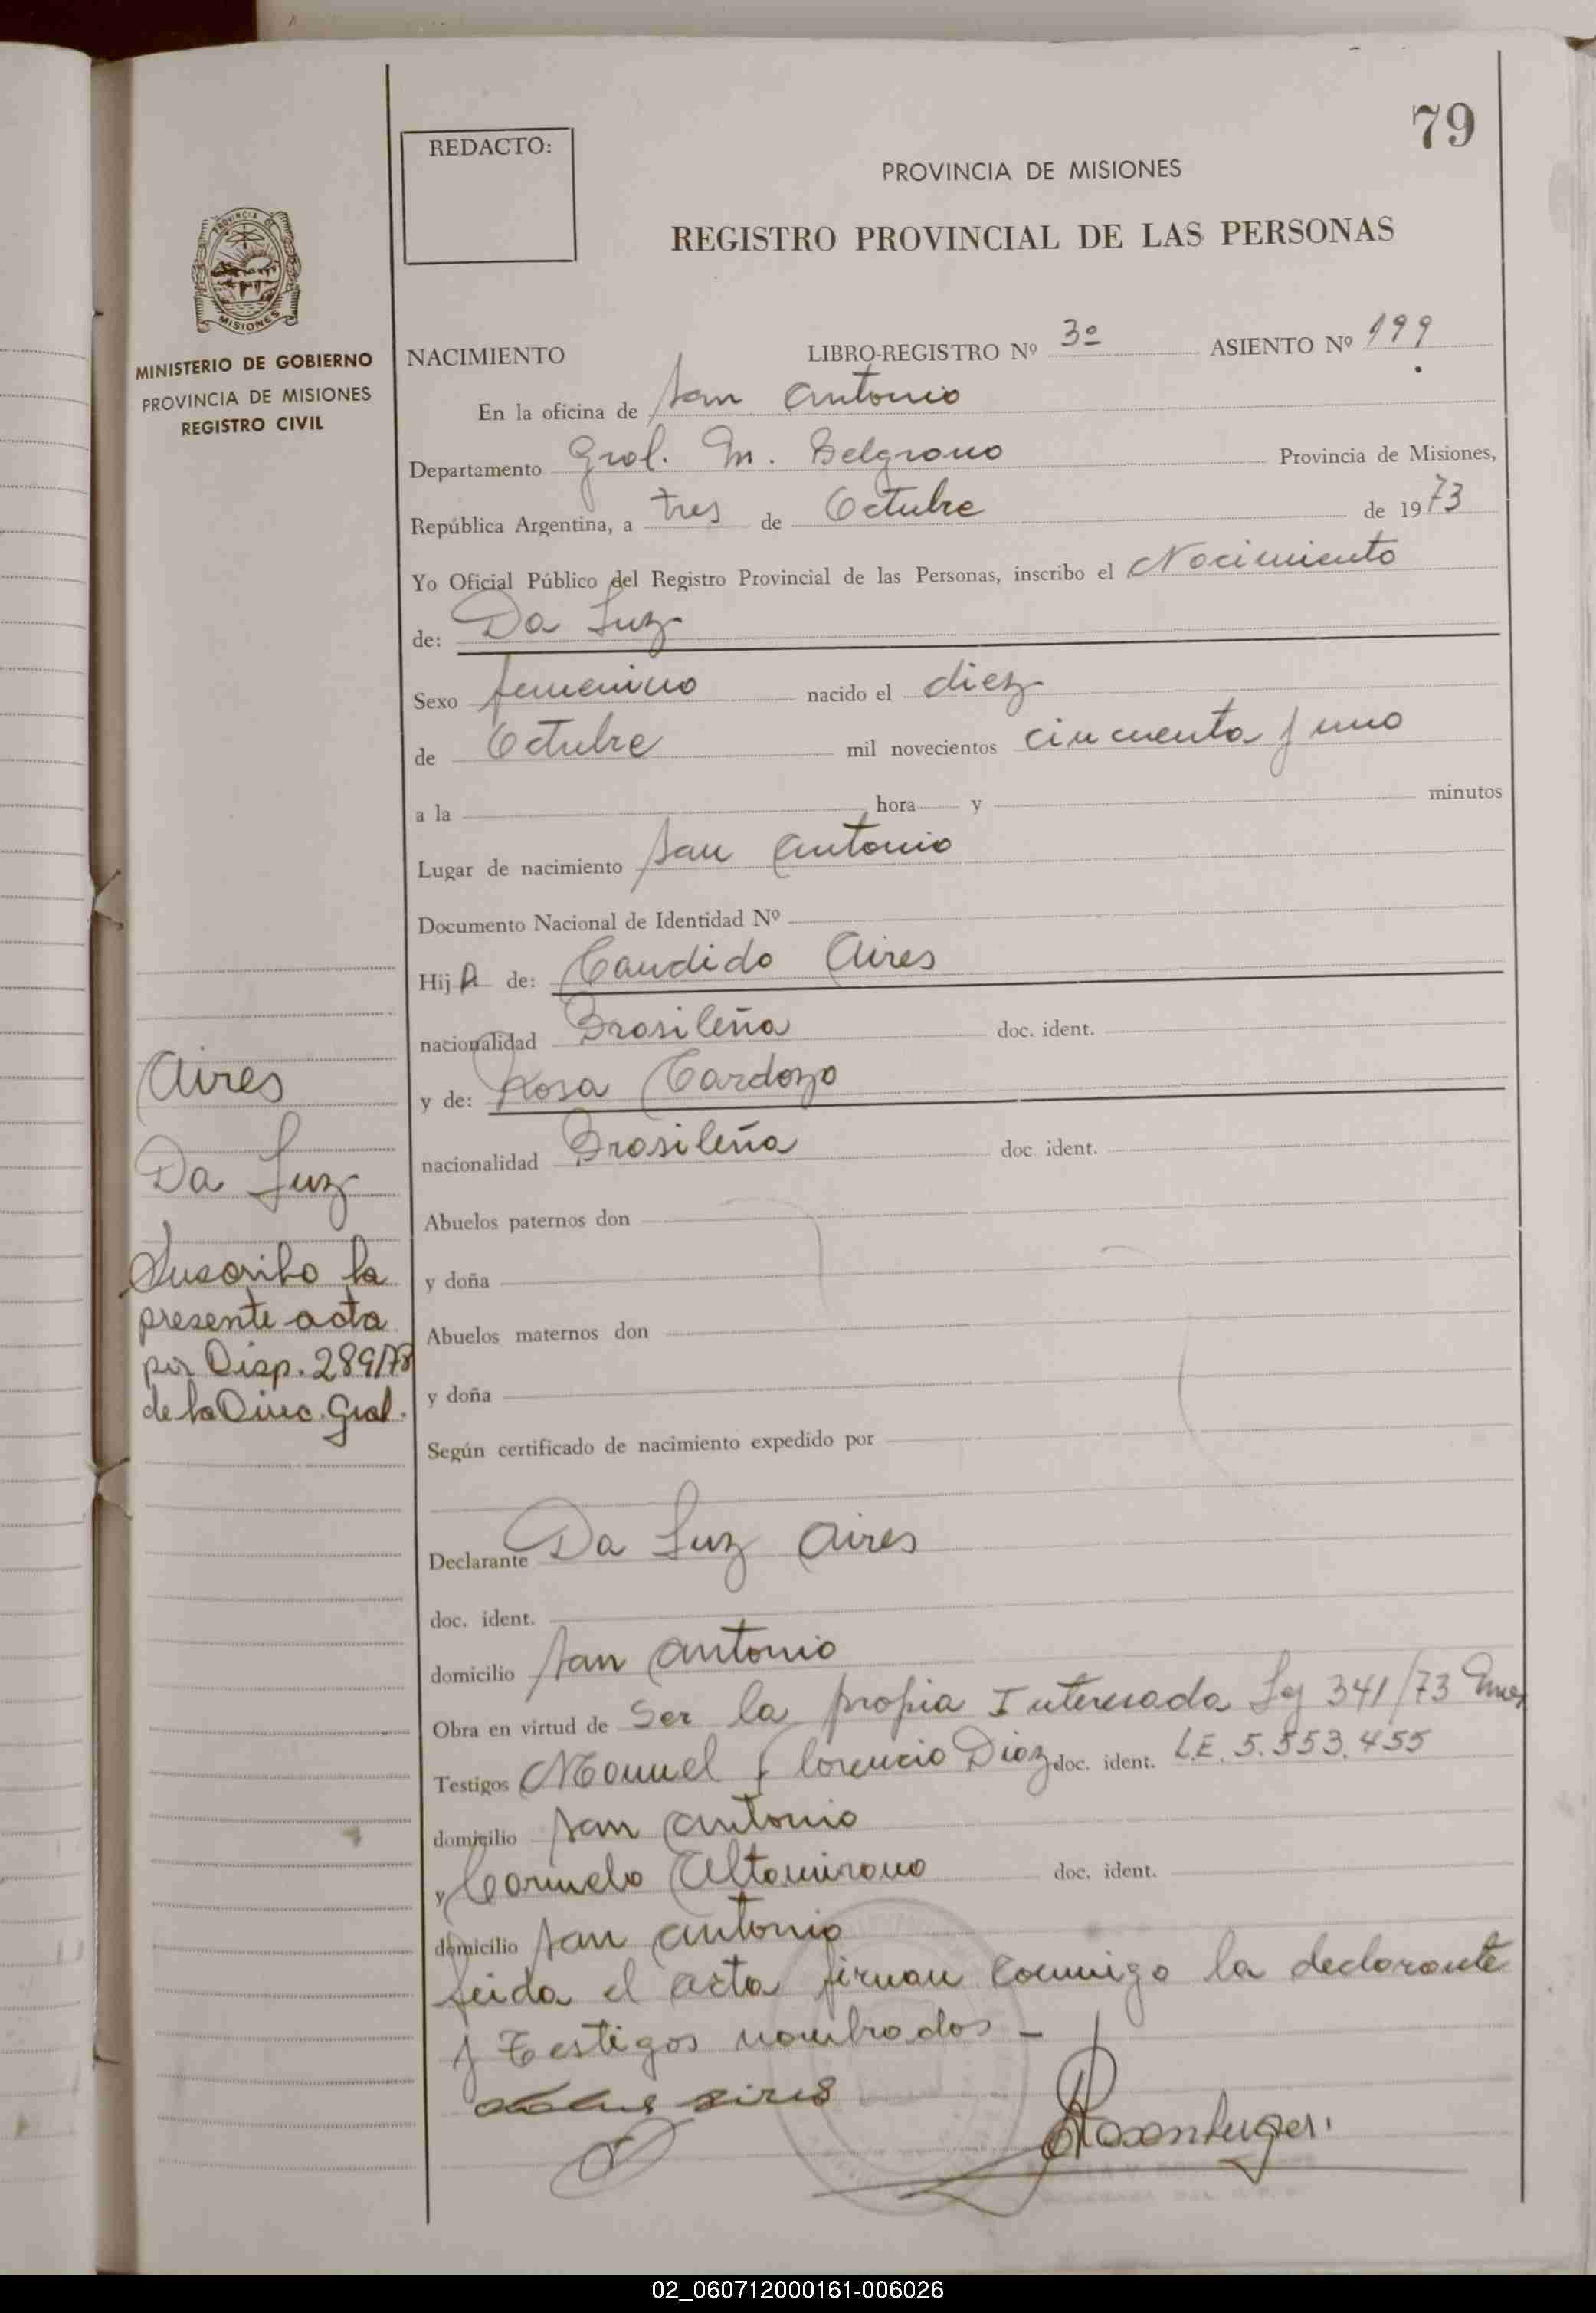 79
REDACTO:
PROVINCIA DE MISIONES
REGISTRO PROVINCIAL DE LAS PERSONAS
PROVINCIA DE
MISIONES
MINISTERIO DE GOBIERNO
PROVINCIA DE MISIONES
REGISTRO CIVIL
NACIMIENTO LIBRO-REGISTRO Nº 3º ASIENTO Nº 199
En la oficina de San Antonio
Departamento Gral. M. Belgrano Provincia de Misiones,
República Argentina, a tres de Octubre de 1973
Yo Oficial Público del Registro Provincial de las Personas, inscribo el Nacimiento
de: Da Luz
Sexo femenino nacido el diez
de Octubre mil novecientos cincuenta y uno
a la hora y minutos
Lugar de nacimiento San Antonio
Documento Nacional de Identidad Nº
Hij A de: Candido Aires
nacionalidad Brasileña doc. ident.
y de: Rosa Cardozo
nacionalidad Brasileña doc ident.
Abuelos paternos don
y doña
Abuelos maternos don
y doña
Según certificado de nacimiento expedido por
Aires
Da Luz
Suscribo la
presente acta
por Disp. 289/78
de la Direc. Gral.
Declarante Da Luz Aires
doc. ident.
domicilio San Antonio
Obra en virtud de Ser la propia Interesada Ley 341/73
Testigos Manuel Florencio Diaz doc. ident. L.E. 5.553.455
domicilio San Antonio
y Carmelo Altamirano doc. ident.
domicilio San Antonio
Leida el acta firman conmigo la declarante
y Testigos nombrados -
aires
02_060712000161-006026